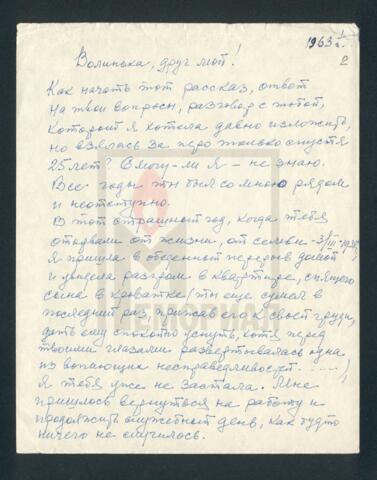 1963 г.
2
Волинька, друг мой!
Как начать тот рассказ, ответ
на твои вопросы, разговор с тобой,
который я хотела давно изложить,
но взялась за перо только спустя
25 лет? Смогу-ли я – не знаю.
Все годы ты был со мною рядом
и неотступно.
В тот страшный год, когда тебя
оторвали от жизни, от семьи - 3/III-1938,
я пришла в обеденный перерыв домой
и увидела разгром в квартире, спящего
сына в кроватке /ты ещё сумел в
последний раз, прижав его к своей груди,
дать ему спокойно уснуть, хотя перед
твоими глазами развертывалась одна
из вопиющих несправедливостей ...../
Я тебя уже не застала. Мне
пришлось вернуться на работу и
продолжить служебный день, как будто
ничего не случилось.
МЕМОРИАЛ